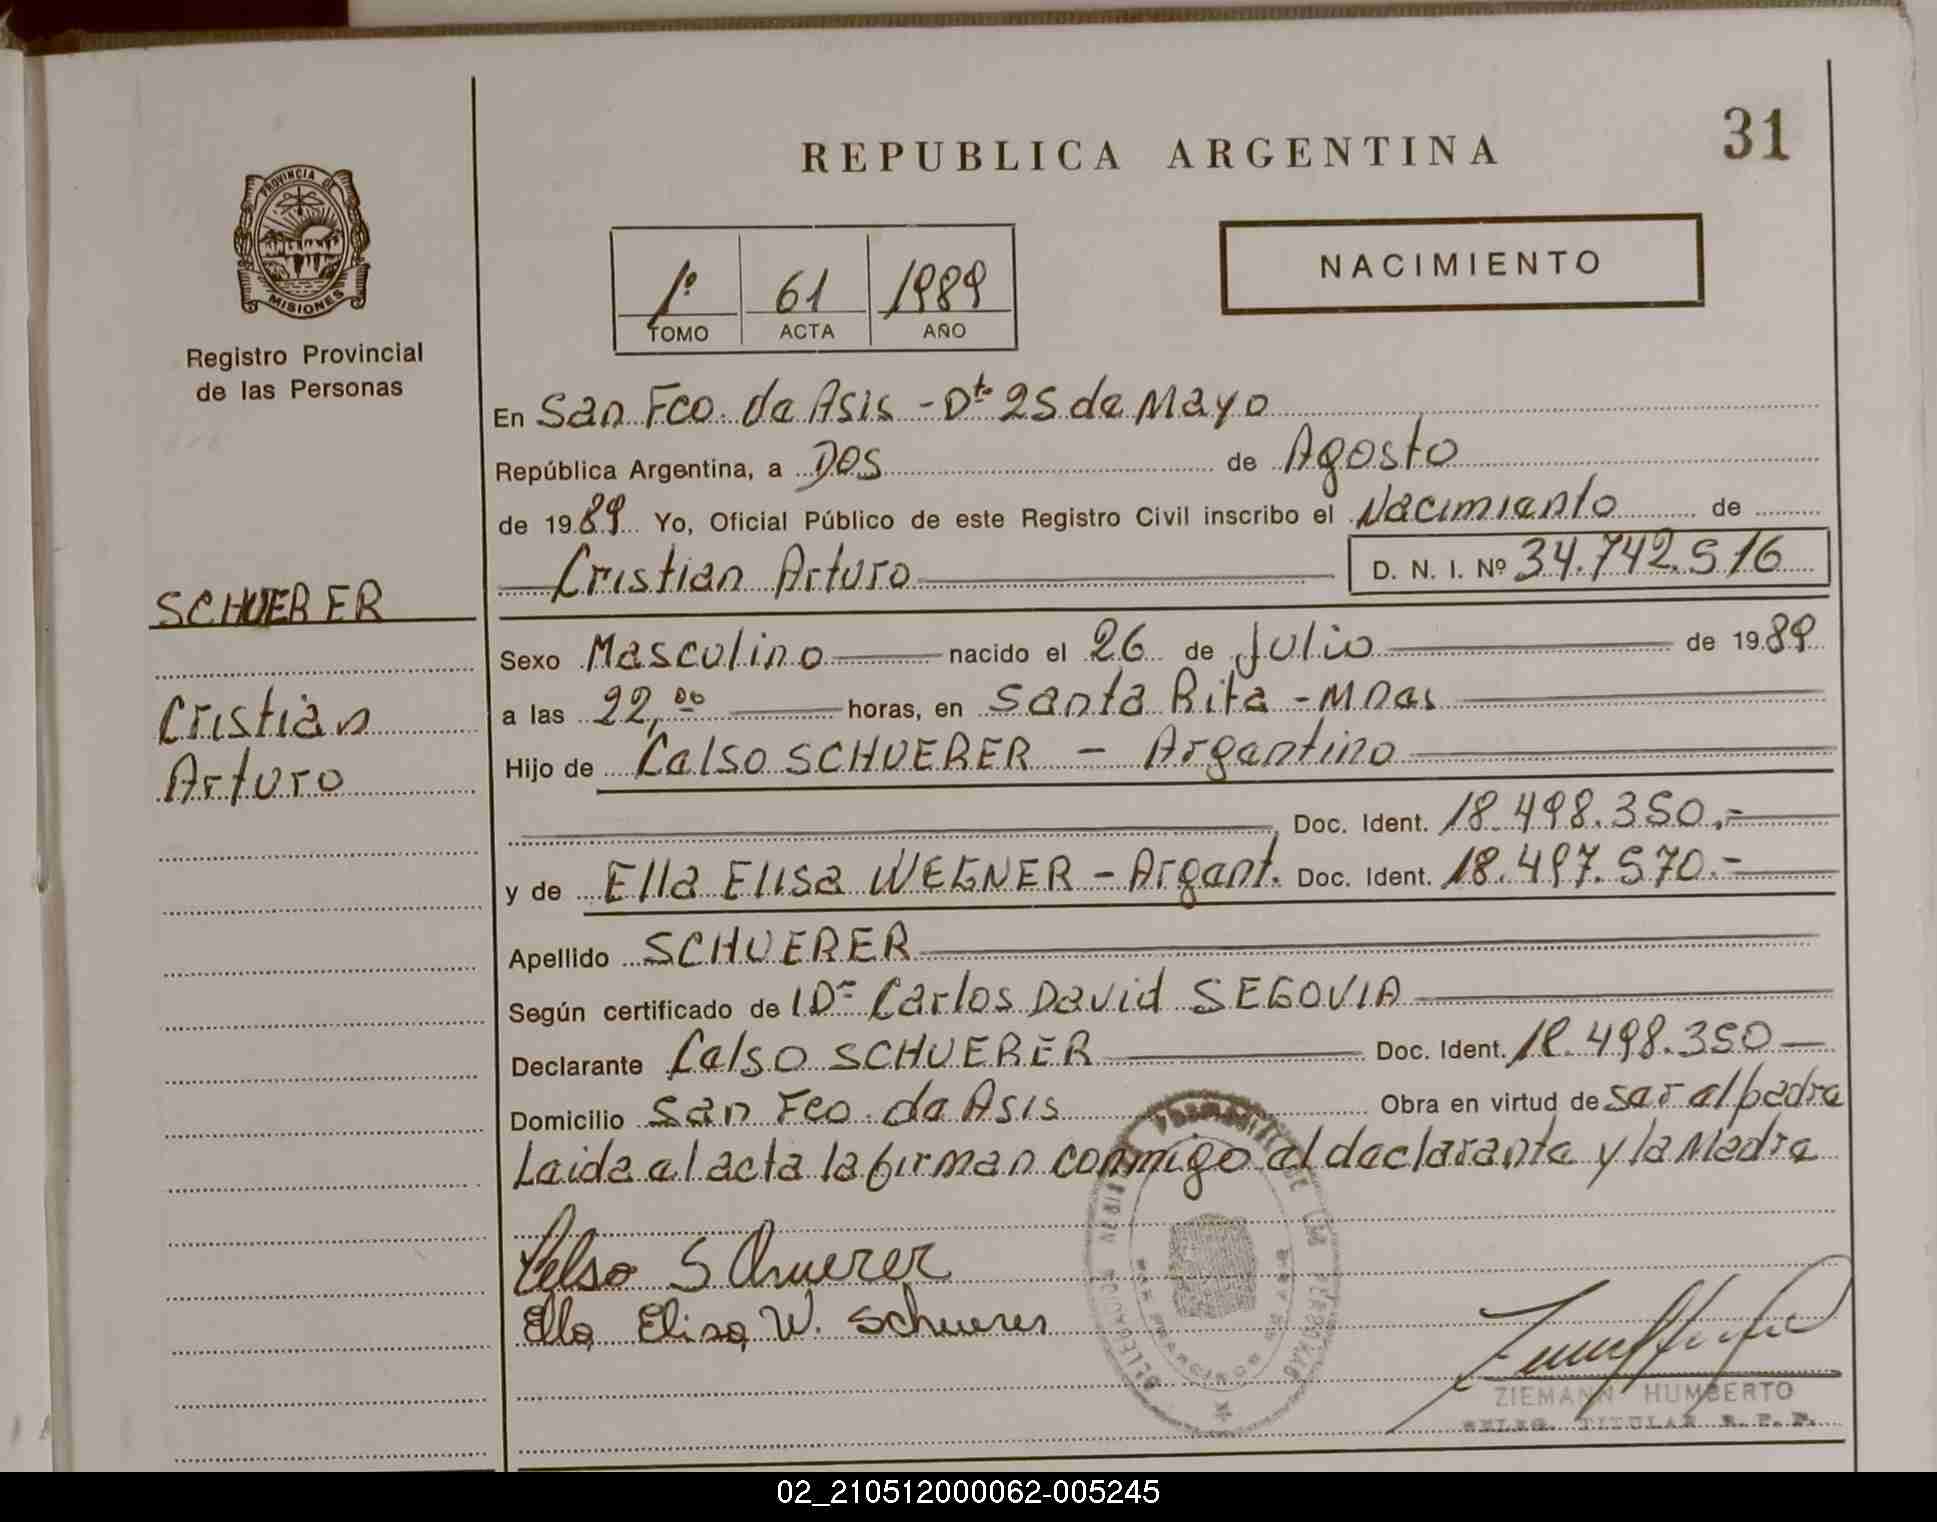 31
REPUBLICA ARGENTINA
PROVINCIA DE
MISIONES
Registro Provincial
de las Personas
NACIMIENTO
1º 61 1989
TOMO ACTA AÑO
En San Fco. de Asis - Dto 25 de Mayo
República Argentina, a Dos de Agosto
de 1989 Yo, Oficial Público de este Registro Civil inscribo el Nacimiento de
Cristian Arturo D. N. I. Nº 34.742.516
SCHUERER
Cristian
Arturo
Sexo Masculino nacido el 26 de Julio de 1989
a las 22,00 horas, en Santa Rita - Mnes
Hijo de Celso SCHUERER - Argentino
Doc. Ident. 18.498.350.=
y de Ella Elisa WEGNER - Argent. Doc. Ident. 18.497.570.=
Apellido SCHUERER
Según certificado de Dr Carlos David SEGOVIA
Declarante Celso SCHUERER Doc. Ident. 18.498.350
Domicilio San Fco. de Asis Obra en virtud de ser el padre
Leida el acta la firman conmigo el declarante y la Madre
Celso Schuerer
Ella Elisa W. Schuerer
ZIEMANN HUMBERTO
DELEG. TITULAR R. P. P.
02_210512000062-005245